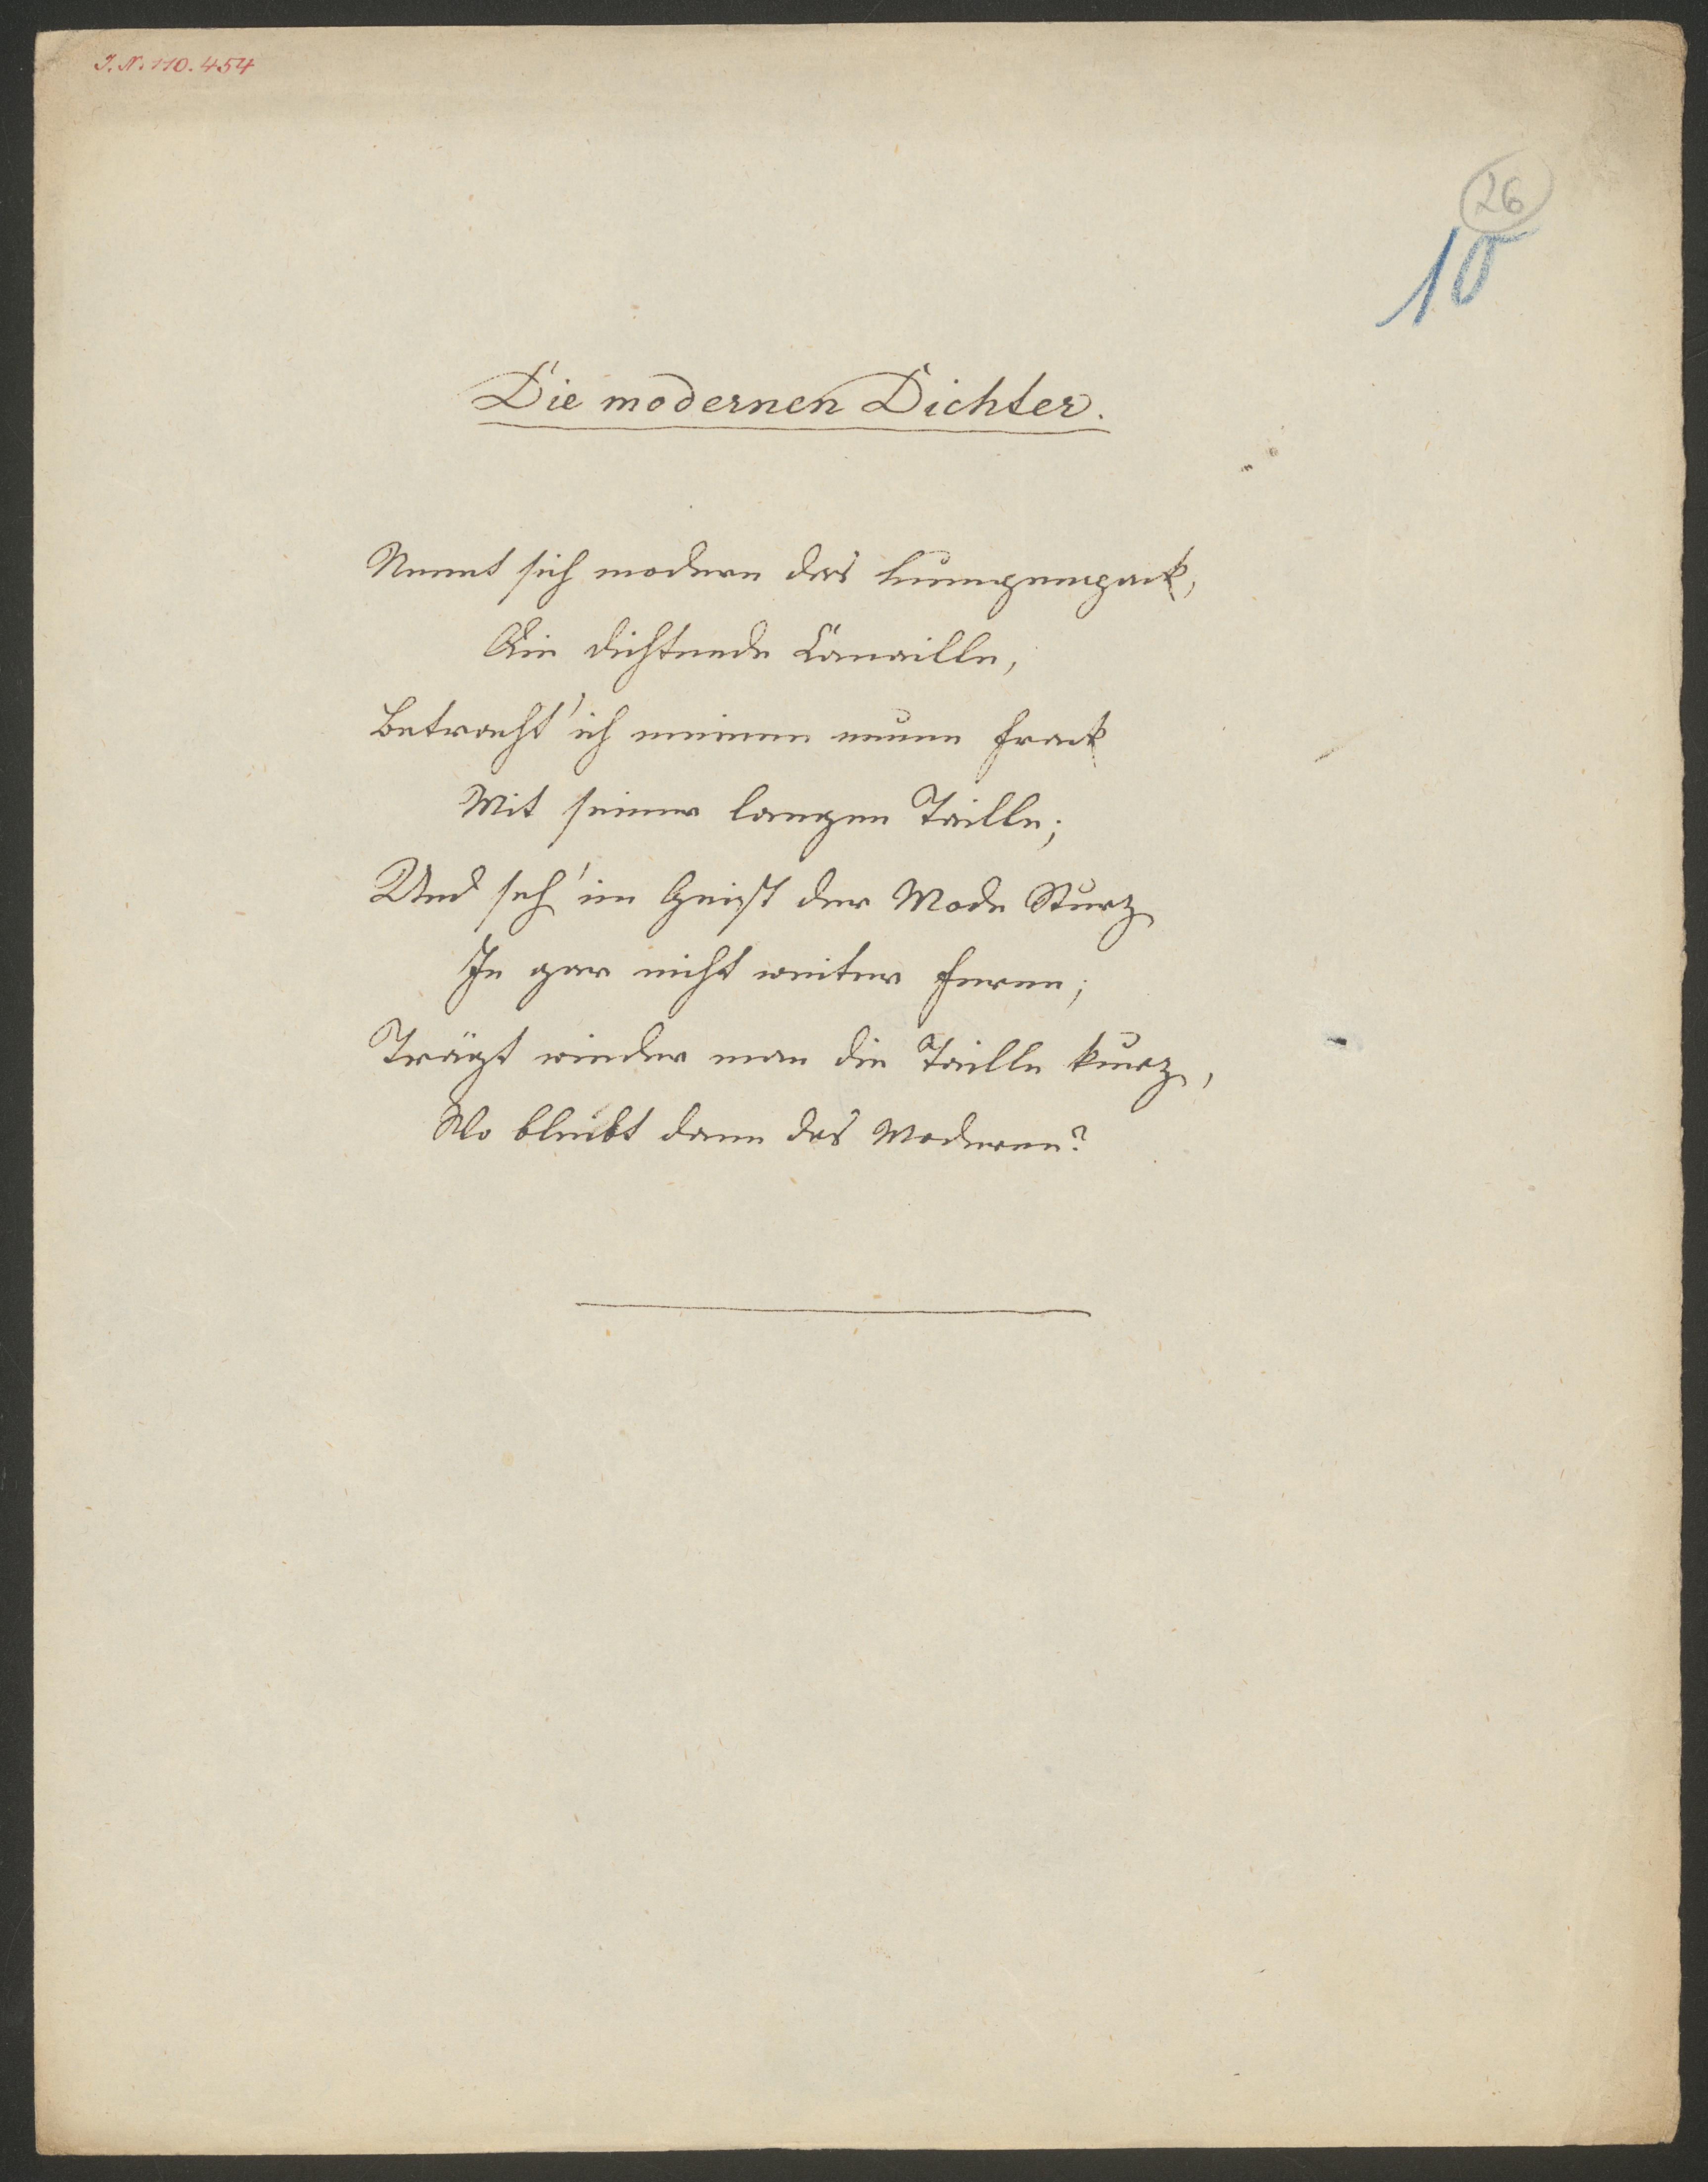 I. N. 110.454
26
10
Die modernen Dichter.
Nennt sich modern das Lumpenpack,
Die dichtende Canaille,
Betracht' ich meinen neuen Frack
Mit seiner langen Taille;
Und seh' im Geist der Mode Sturz
In gar nicht weiter Ferne;
Trägt wieder man die Taille kurz,
Wo bleibt dann das Moderne?